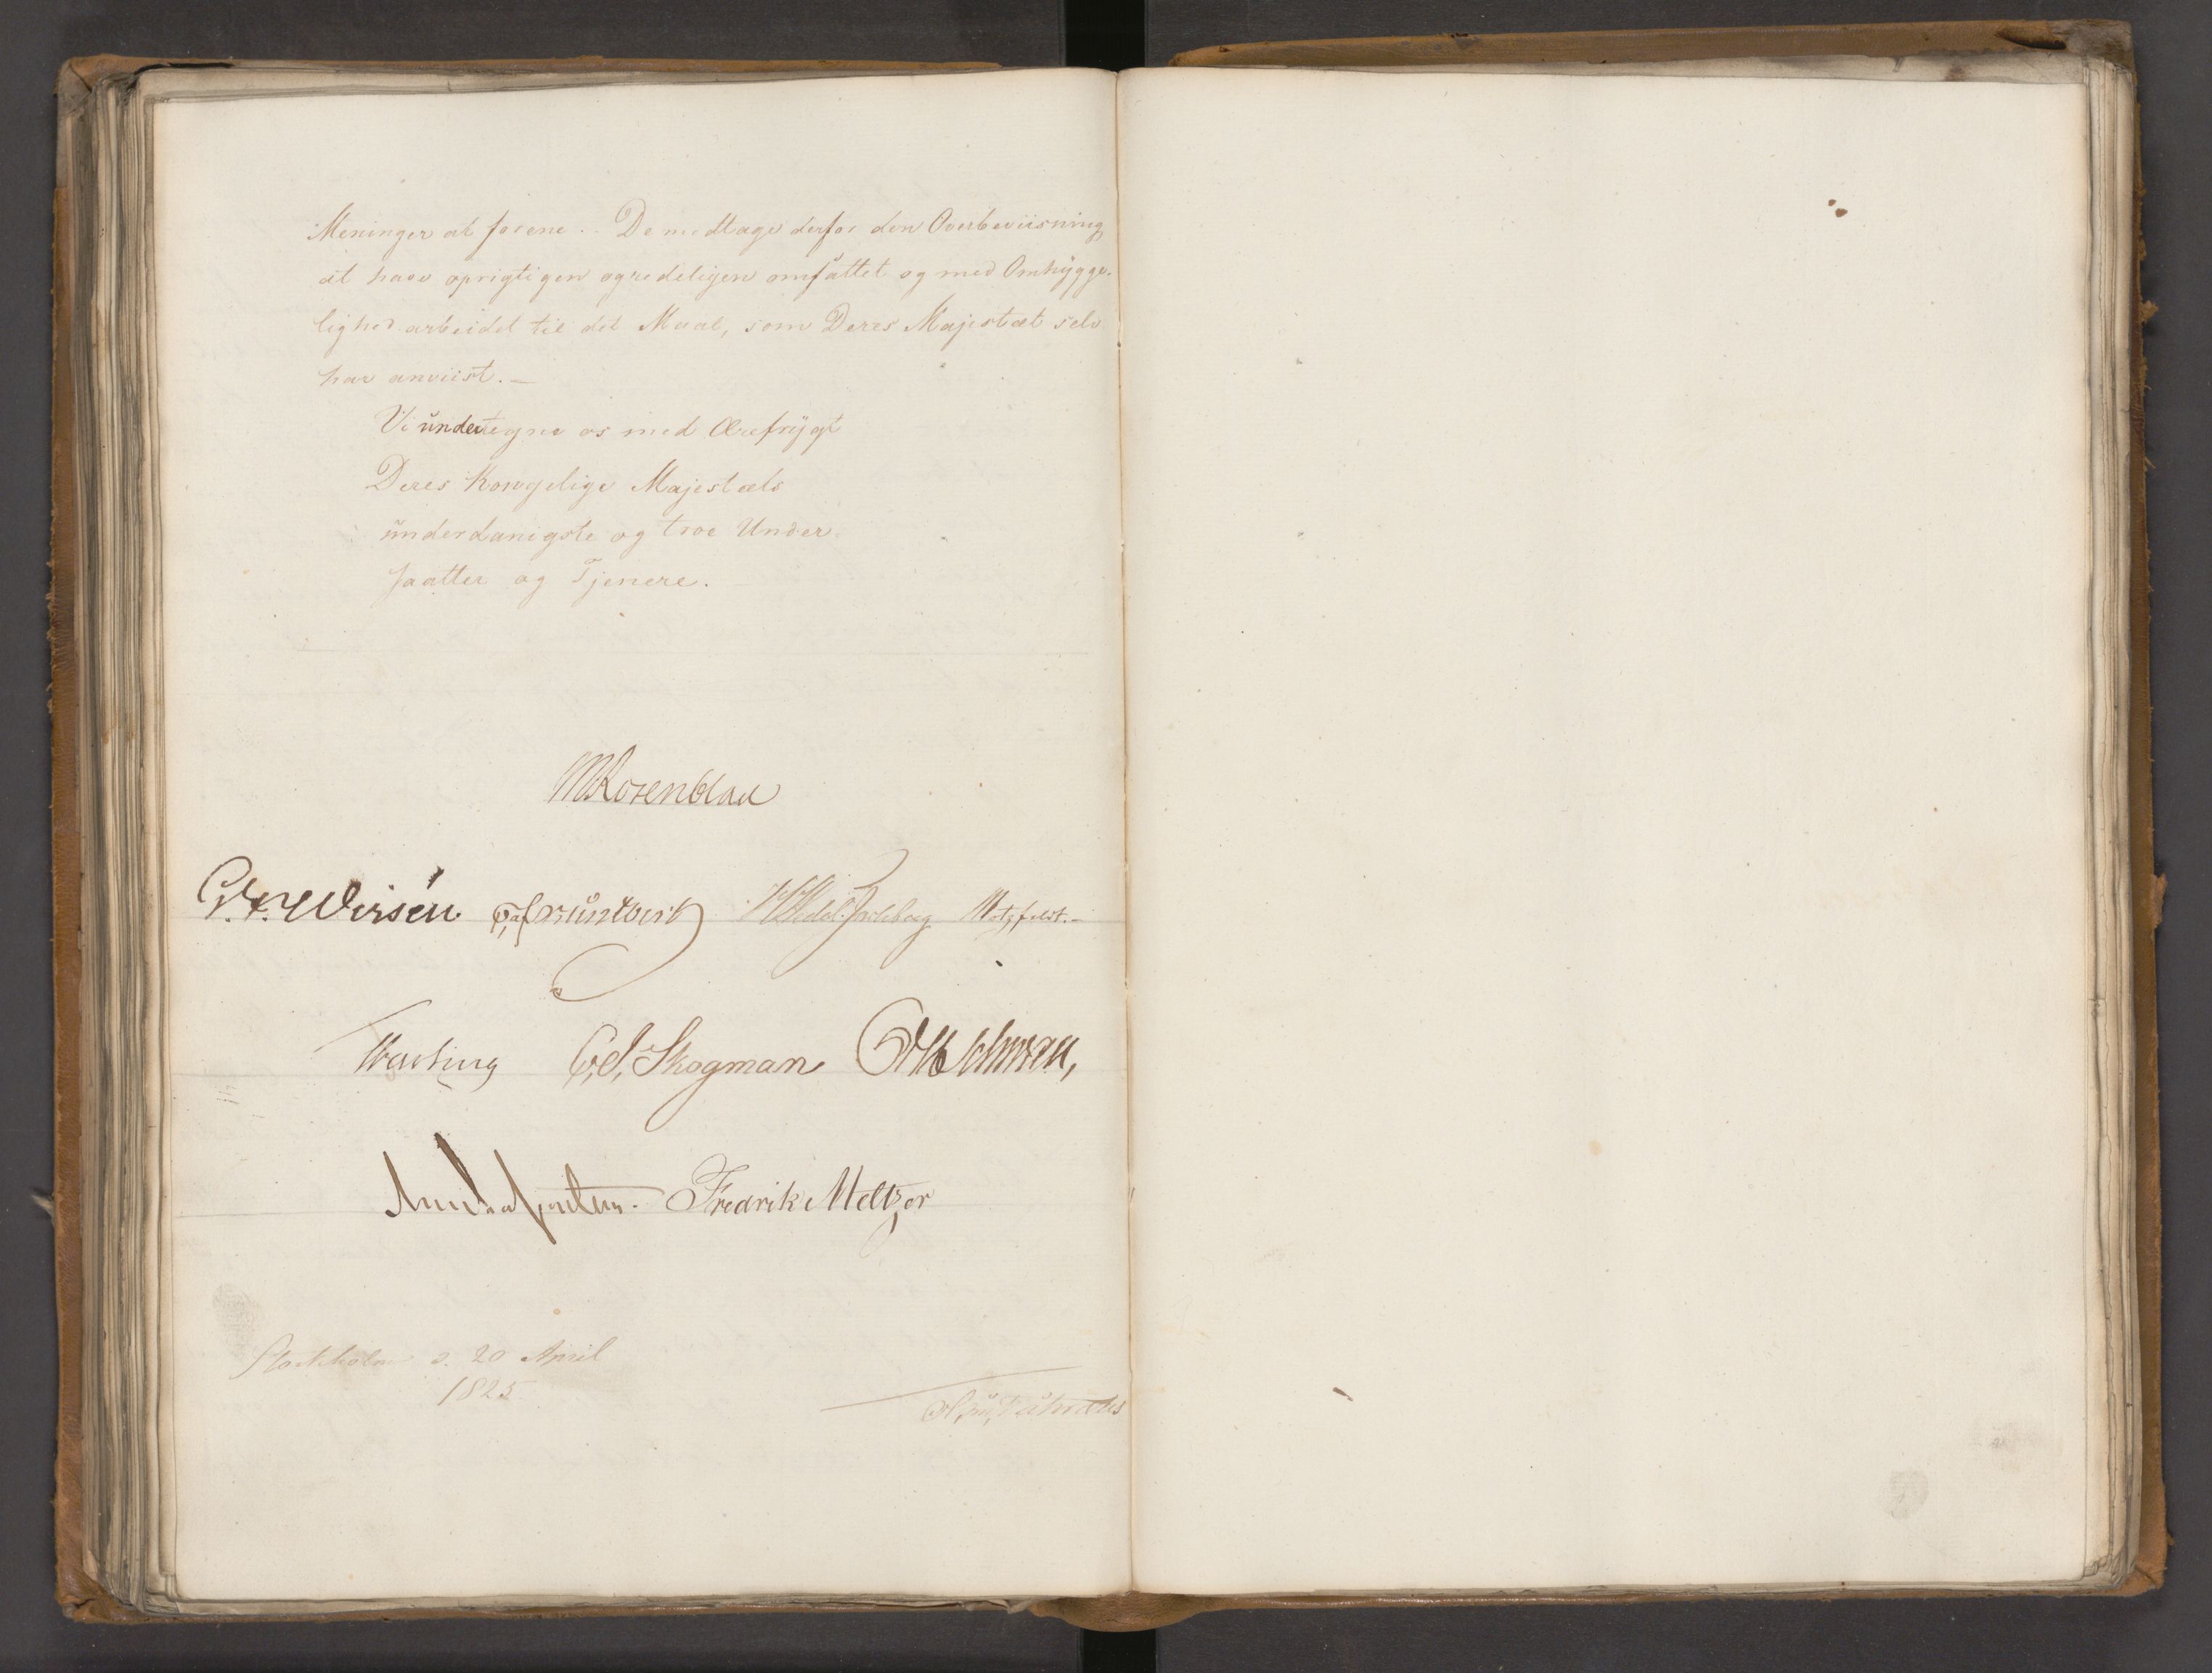 Meninger at forene. De medtage derfor den Overbeviisning
at have oprigtigen og redeligen omfattet og med Omhygge-
lighed arbeidet til det Maal, som Deres Majestæt selv
har anviist. —
Vi undertegne os med Ærefrygt
Deres Kongelige Majestæts
underdanigste og troe Under-
saatter og Tjenere.
MRosenblad
Wirsén Wedel Jarlsberg Motzfeldt. —
C. D. Skogman
Fredrik Meltzer
Stockholm d. 20 April
1825